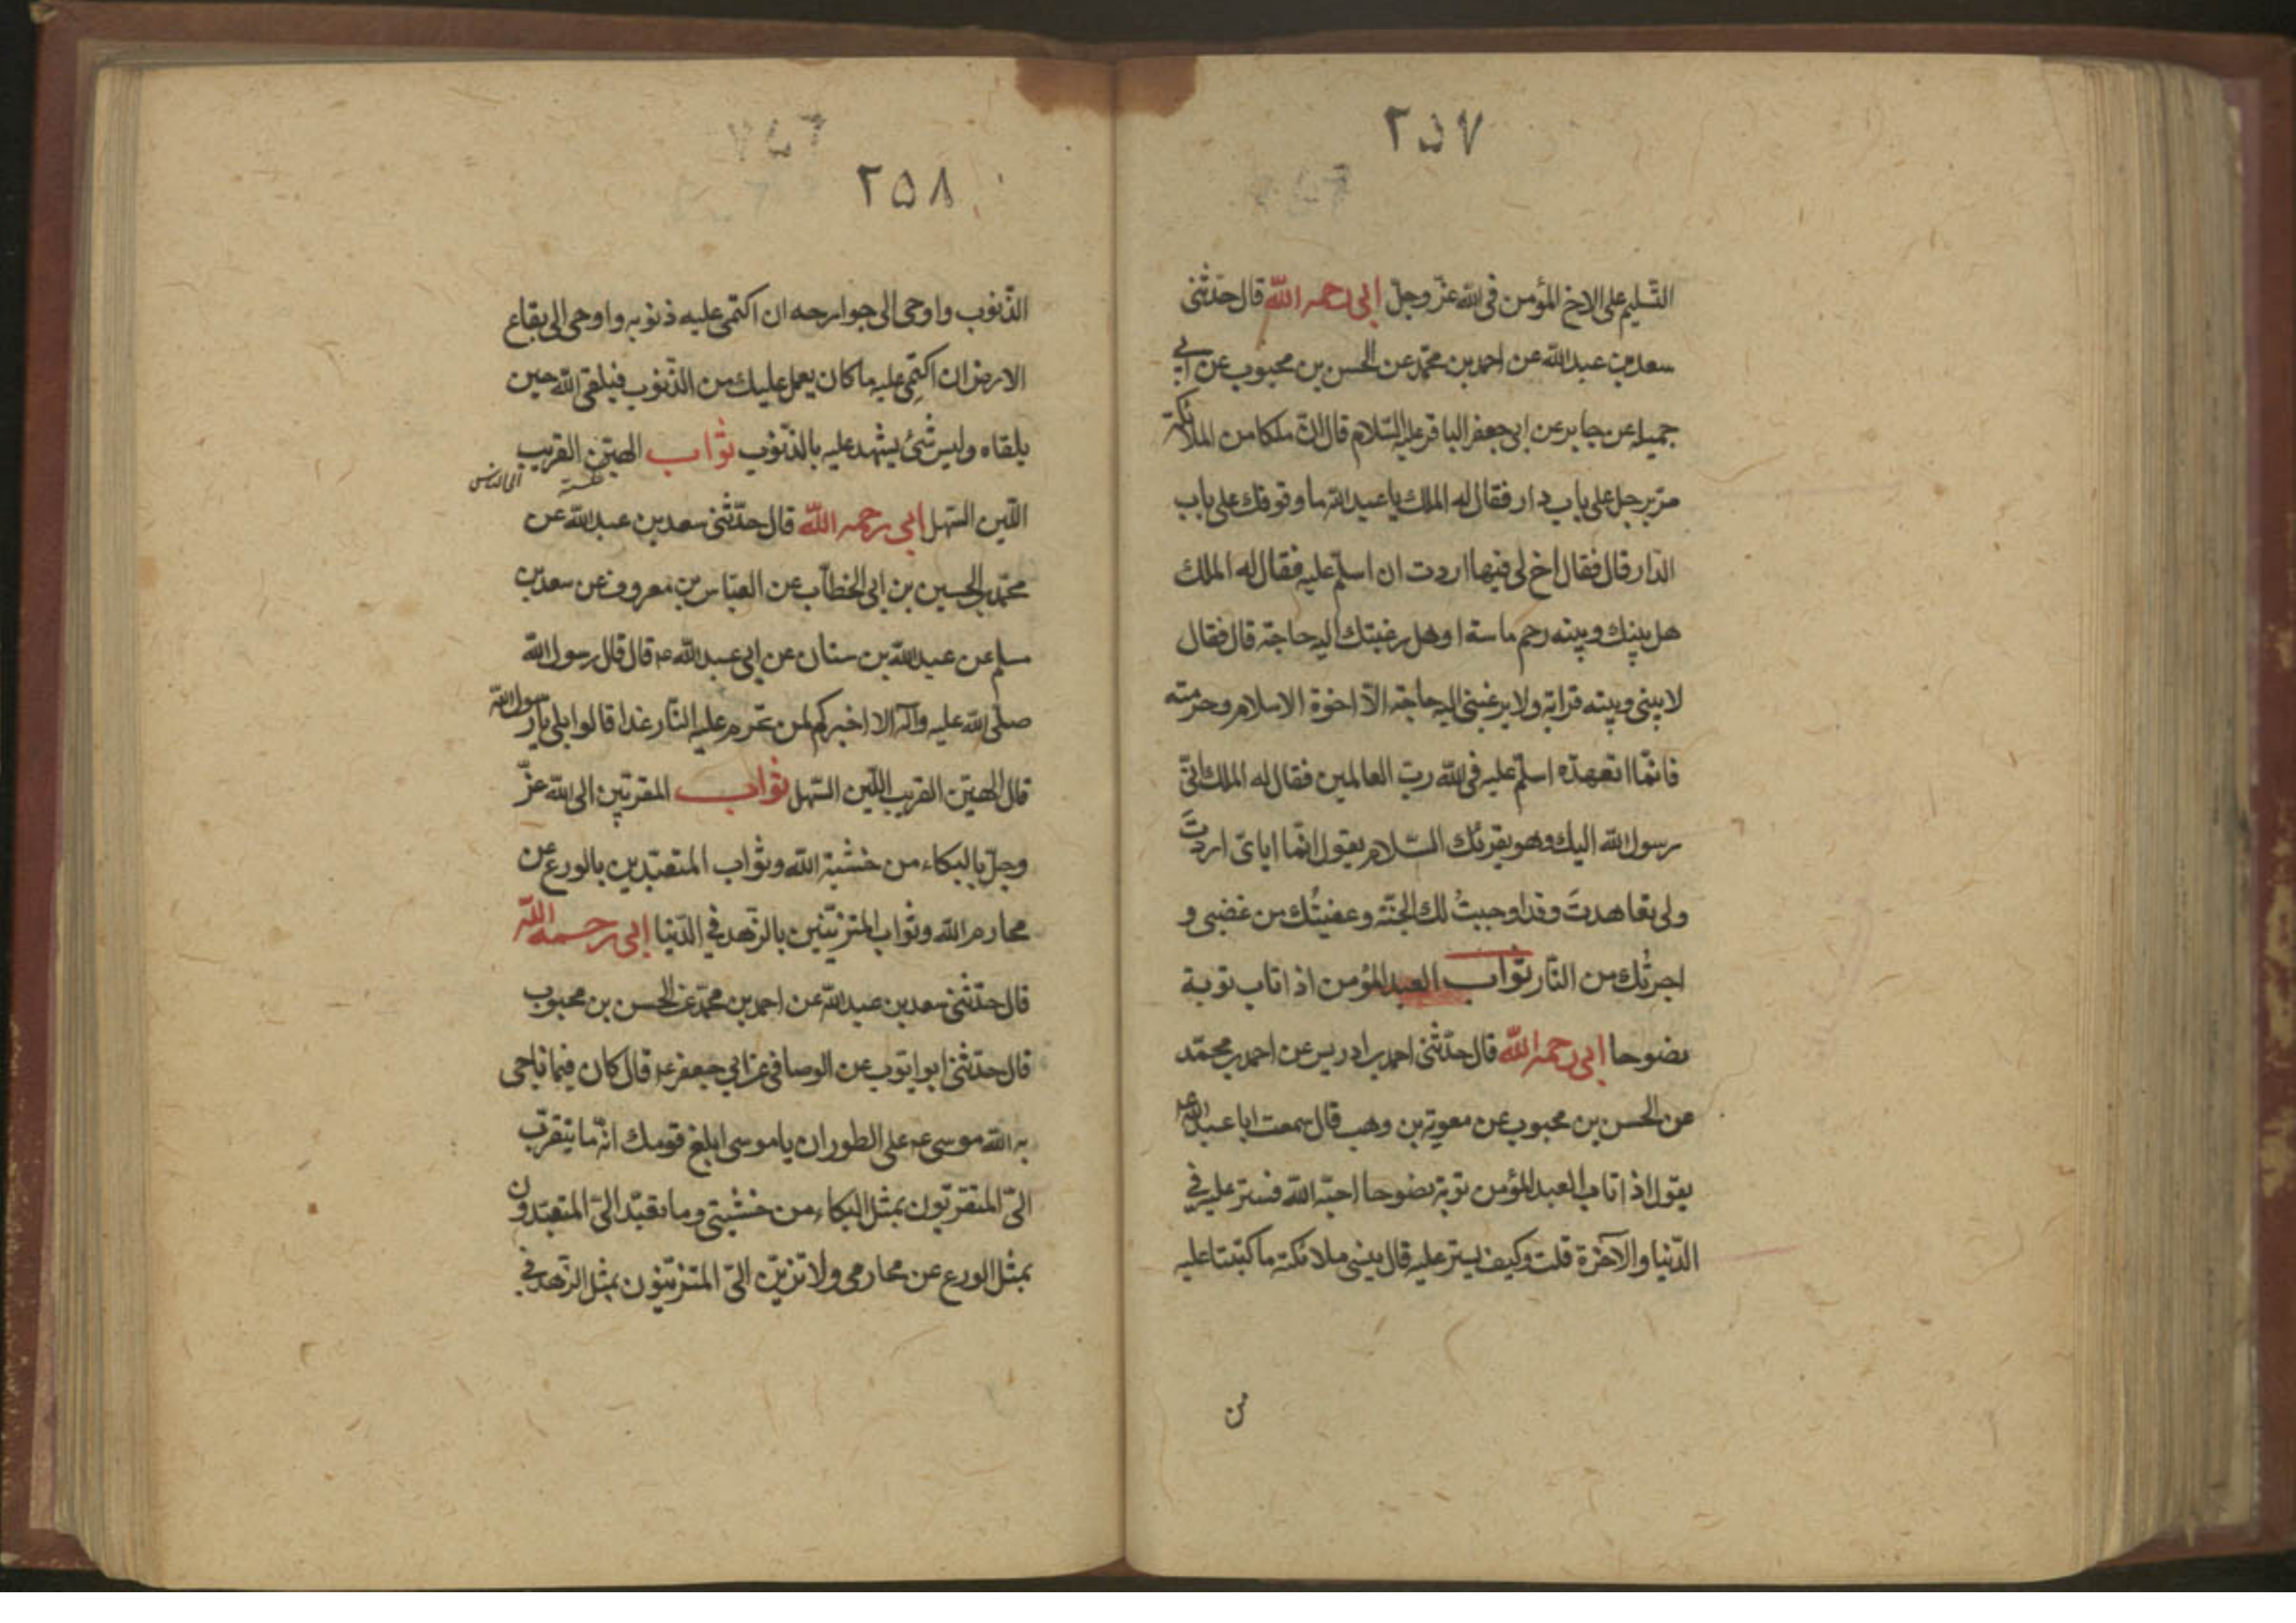 ٢٥٧
التّسليم على الاخ المؤمن فى الله عزّ وجلّ ابى رحمه الله قال حدّثنى
سعد بن عبد الله عن احمد بن محمّد عن الحسن بن محبوب عن ابى
جميله عن جابر عن ابى جعفر الباقر عليه السّلام قال انّ ملكا من الملائكة
مرّ برجل على باب دار فقال له الملك يا عبد الله ما وقوفك على باب
الدّار قال فقال اخ لى فيها اردت ان اسلّم عليه فقال له الملك
هل بينك وبينه رحم ماسة او هل رغبتك اليه حاجة قال فقال
لا بينى وبينه قرابة ولا يرغبنى اليه حاجة الّا اخوة الاسلام وحرمته
فانّما اتعهدّه اسلّم عليه فى الله ربّ العالمين فقال له الملك انّى
رسول الله اليك وهو يقرئك السّلام يقول انّما ايّاى اردتَ
ولى تعاهدتَ وقد اوجبتُ لك الجنّة وعفيتُك من غضبى و
اجرتُك من النّار ثواب العبد المؤمن اذ اتاب توبة
نضوحا ابى رحمه الله قال حدّثنى احمد بن ادريس عن احمد بن محمّد
عن الحسن بن محبوب عن معوية بن وهب قال سمعت ابا عبد الله ع
يقول اذ اتاب العبد المؤمن توبة نضوحا احبّه الله فستر عليه فى
الدّنيا والآخرة قلت وكيف يستر عليه قال ينسى ملائكته ما كتبتا عليه
من
٢٥٨
الذّنوب واوحى الى جوارحه ان اكتمى عليه ذنوبه واوحى الى بقاع
الارض ان اكتِمى عليه ما كان يعمل عليك من الذّنوب فيلقى الله حين
يلقاه وليس شئ يشهد عليه بالذّنوب ثواب الهيّن القريب
اللّين السّهل ابى رحمه الله قال حدّثنى سعد بن عبد الله عن
محمّد بن الحسين بن ابى الخطّاب عن العبّاس بن معروف عن سعد بن
مسلم عن عبد الله بن سنان عن ابى عبد الله ع قال قال رسول الله
صلّى الله عليه وآله الا اخبركم لمن تحرم عليه النّار غدا قالوا بلى يا رسول الله
قال الهيّن القريب اللّين السّهل ثواب المقربّين الى الله عزّ
وجلّ بالبكاء من خشية الله وثواب المتعبّدين بالورع عن
محارم الله وثواب المتزيّنين بالزّهد فى الدّنيا ابى رحمه الله
قال حدّثنى سعد بن عبد الله عن احمد بن محمّد عن الحسن بن محبوب
قال حدّثنى ابو ايّوب عن الوصافى عن ابى جعفر ع قال كان فيما ناجى
به الله موسى ع على الطور ان يا موسى ابلغ قومك انّه ما يتقرّب
الىّ المتقرّبون بمثل البكاء من خشيتى وما تعبّد الىّ المتعبّدون
بمثل الورع عن محارمى ولا تزيّن الىّ المتزيّنون بمثل الزّهد فى